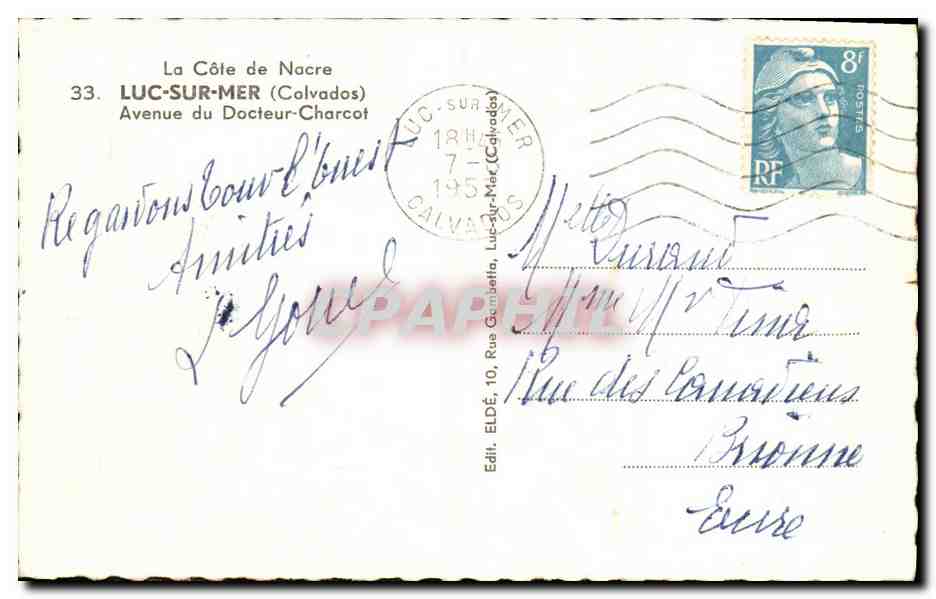 La Côte de Nacre
33. LUC-SUR-MER (Calvados)
Avenue du Docteur-Charcot
Regardons tour l'ouest
Amitiés
LUC-SUR-MER
18H
7-
195
CALVADOS
8F
POSTES
RF
Edit. ELDÉ, 10, Rue Gambetta, Luc-sur-Mer (Calvados)
CPAPHIL
Melle Durand
Mme Mr
Rue des Canadiens
Brionne
Eure